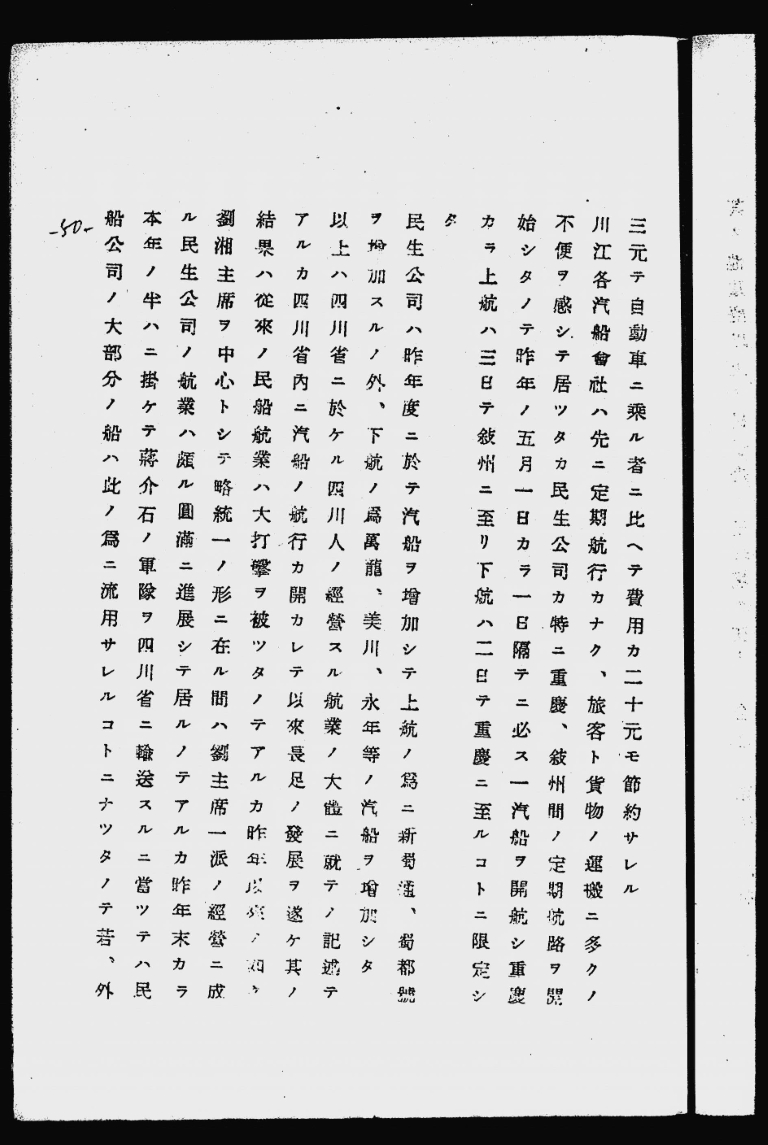 三元テ自動車ニ乘ル者ニ比ヘテ費用カ二十元モ節約サレル
川江各汽船會社ハ先ニ定期航行カナク、旅客ト貨物ノ運搬ニ多クノ
不便ヲ感シテ居ツタカ民生公司カ特ニ重慶、敍州間ノ定期航路ヲ開
始シタノテ昨年ノ五月一日カラ一日隔テニ必ス一汽船ヲ開航シ重慶
カラ上航ハ三日テ敍州ニ至リ下航ハ二日テ重慶ニ至ルコトニ限定シ
タ
民生公司ハ昨年度ニ於テ汽船ヲ增加シテ上航ノ爲ニ新蜀通、蜀都號
ヲ增加スルノ外、下航ノ爲萬龍、美川、永年等ノ汽船ヲ增加シタ
以上ハ四川省ニ於ケル四川人ノ經營スル航業ノ大體ニ就テノ記述テ
アルカ四川省內ニ汽船ノ航行カ開カレテ以來長足ノ發展ヲ遂ケ其ノ
結果ハ從來ノ民船航業ハ大打擊ヲ被ツタノテアルカ昨年以來ノ四
劉湘主席ヲ中心トシテ略統一ノ形ニ在ル間ハ劉主席一派ノ經營ニ成
ル民生公司ノ航業ハ頗ル圓滿ニ進展シテ居ルノテアルカ昨年末カラ
本年ノ半ハニ掛ケテ蔣介石ノ軍隊ヲ四川省ニ輸送スルニ當ツテハ民
船公司ノ大部分ノ船ハ此ノ爲ニ流用サレルコトニナツタノテ若、外
-50-